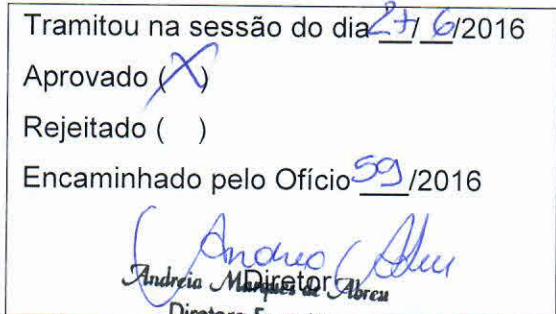 Tramitou na sessão do dia 27/ 6/2016
Aprovado (X)
Rejeitado ( )
Encaminhado pelo Ofício 59/2016
Andreia Abreu
Diretor
Andreia Marques de Abreu